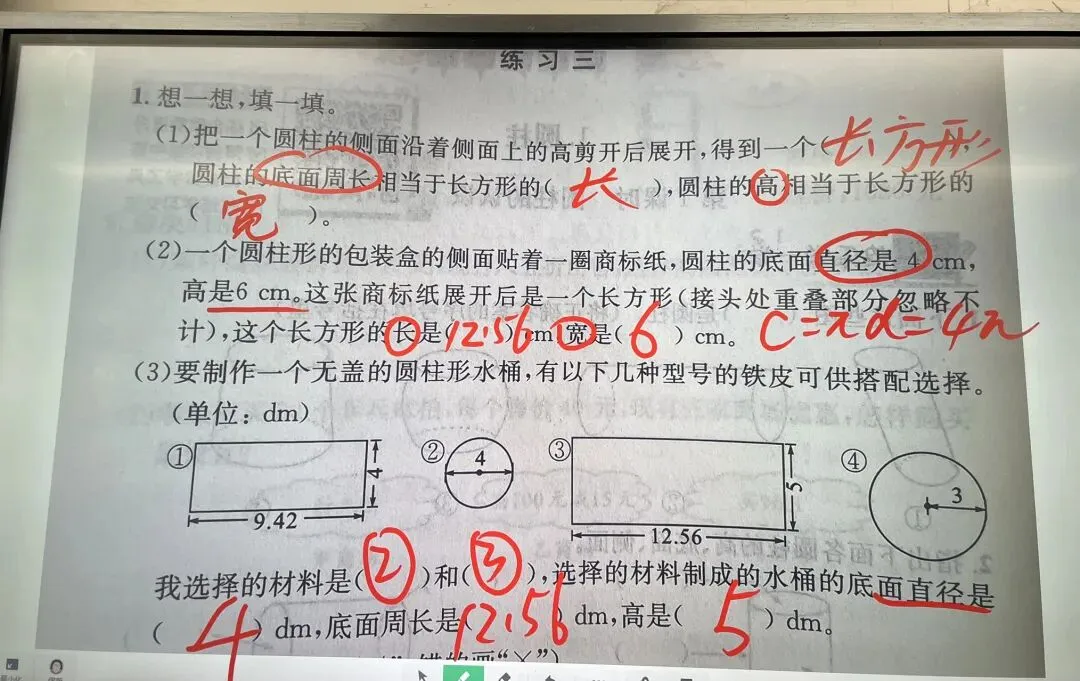 练习三
1. 想一想,填一填。
(1)把一个圆柱的侧面沿着侧面上的高剪开后展开,得到一个(长方形
圆柱的底面周长相当于长方形的( 长 ),圆柱的高相当于长方形的
( 宽 )。
(2)一个圆柱形的包装盒的侧面贴着一圈商标纸,圆柱的底面直径是 4 cm,
高是6 cm。这张商标纸展开后是一个长方形(接头处重叠部分忽略不
计),这个长方形的长是(12.56) cm,宽是( 6 ) cm。 C=πd=4π
(3)要制作一个无盖的圆柱形水桶,有以下几种型号的铁皮可供搭配选择。
(单位: dm)
① 4 9.42 ② 4 ③ 5 12.56 ④ 3
我选择的材料是(②)和(③),选择的材料制成的水桶的底面直径是
( 4 ) dm,底面周长是(12.56) dm,高是( 5 ) dm。